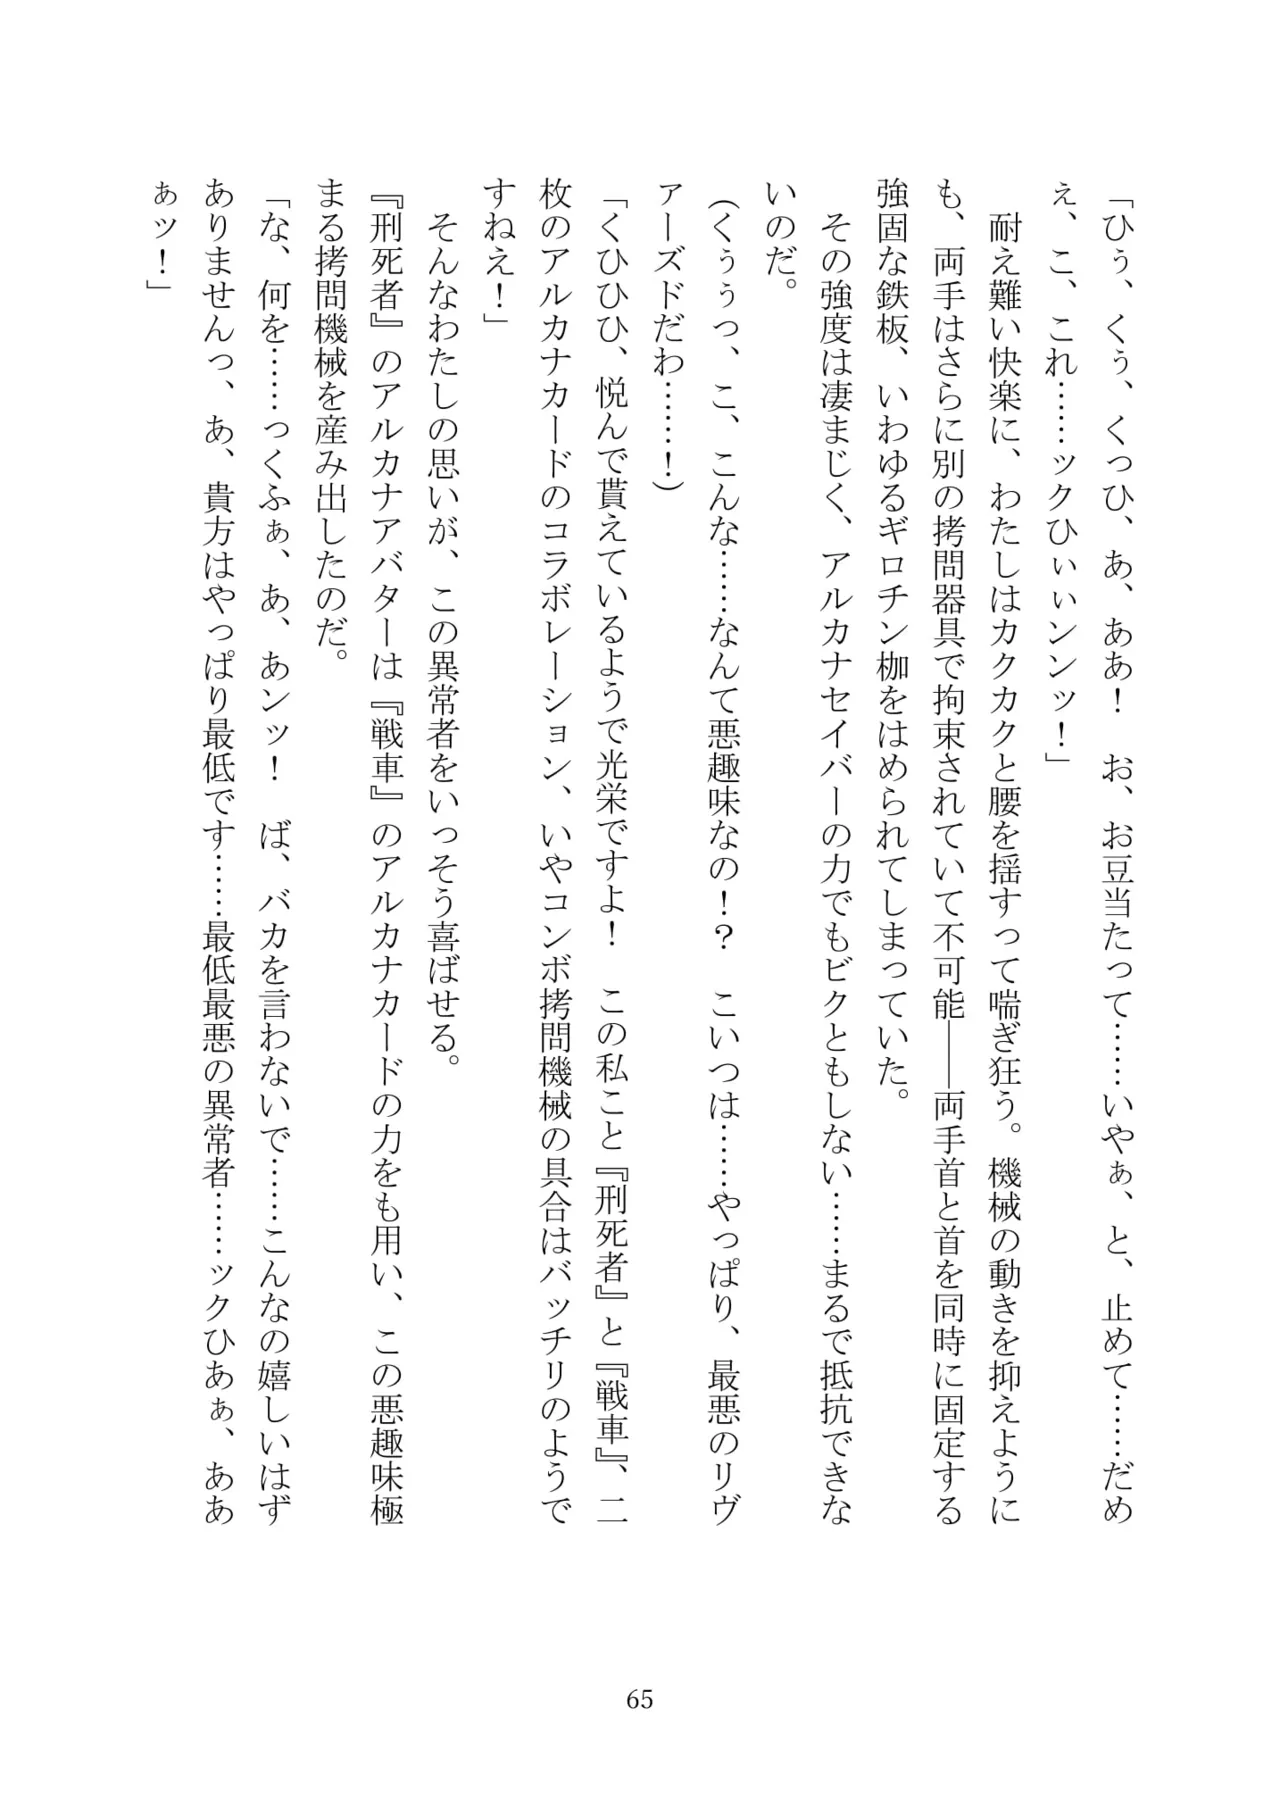 「ひぅ、くぅ、くっひ、あ、ああ！　お、お豆当たって……いやぁ、と、止めて……だめ
ぇ、こ、これ……ックひぃぃンンッ！」
　耐え難い快楽に、わたしはカクカクと腰を揺すって喘ぎ狂う。機械の動きを抑えように
も、両手はさらに別の拷問器具で拘束されていて不可能――両手首と首を同時に固定する
強固な鉄板、いわゆるギロチン枷をはめられてしまっていた。
　その強度は凄まじく、アルカナセイバーの力でもビクともしない……まるで抵抗できな
いのだ。
（くぅぅっ、こ、こんな……なんて悪趣味なの！？　こいつは……やっぱり、最悪のリヴ
ァーズドだわ……！）
「くひひひ、悦んで貰えているようで光栄ですよ！　この私こと『刑死者』と『戦車』、二
枚のアルカナカードのコラボレーション、いやコンボ拷問機械の具合はバッチリのようで
すねえ！」
　そんなわたしの思いが、この異常者をいっそう喜ばせる。
『刑死者』のアルカナアバターは『戦車』のアルカナカードの力をも用い、この悪趣味極
まる拷問機械を産み出したのだ。
「な、何を……っくふぁ、あ、あンッ！　ば、バカを言わないで……こんなの嬉しいはず
ありませんっ、あ、貴方はやっぱり最低です……最低最悪の異常者……ックひあぁ、ああ
ぁッ！」
65